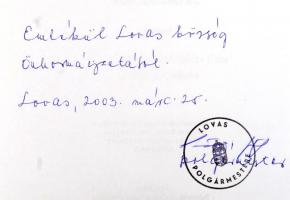 Emlékül Lovas község
Önkormányzatától.
Lovas, 2003. márc. 25.
polgármester
LOVAS
POLGÁRMESTERE